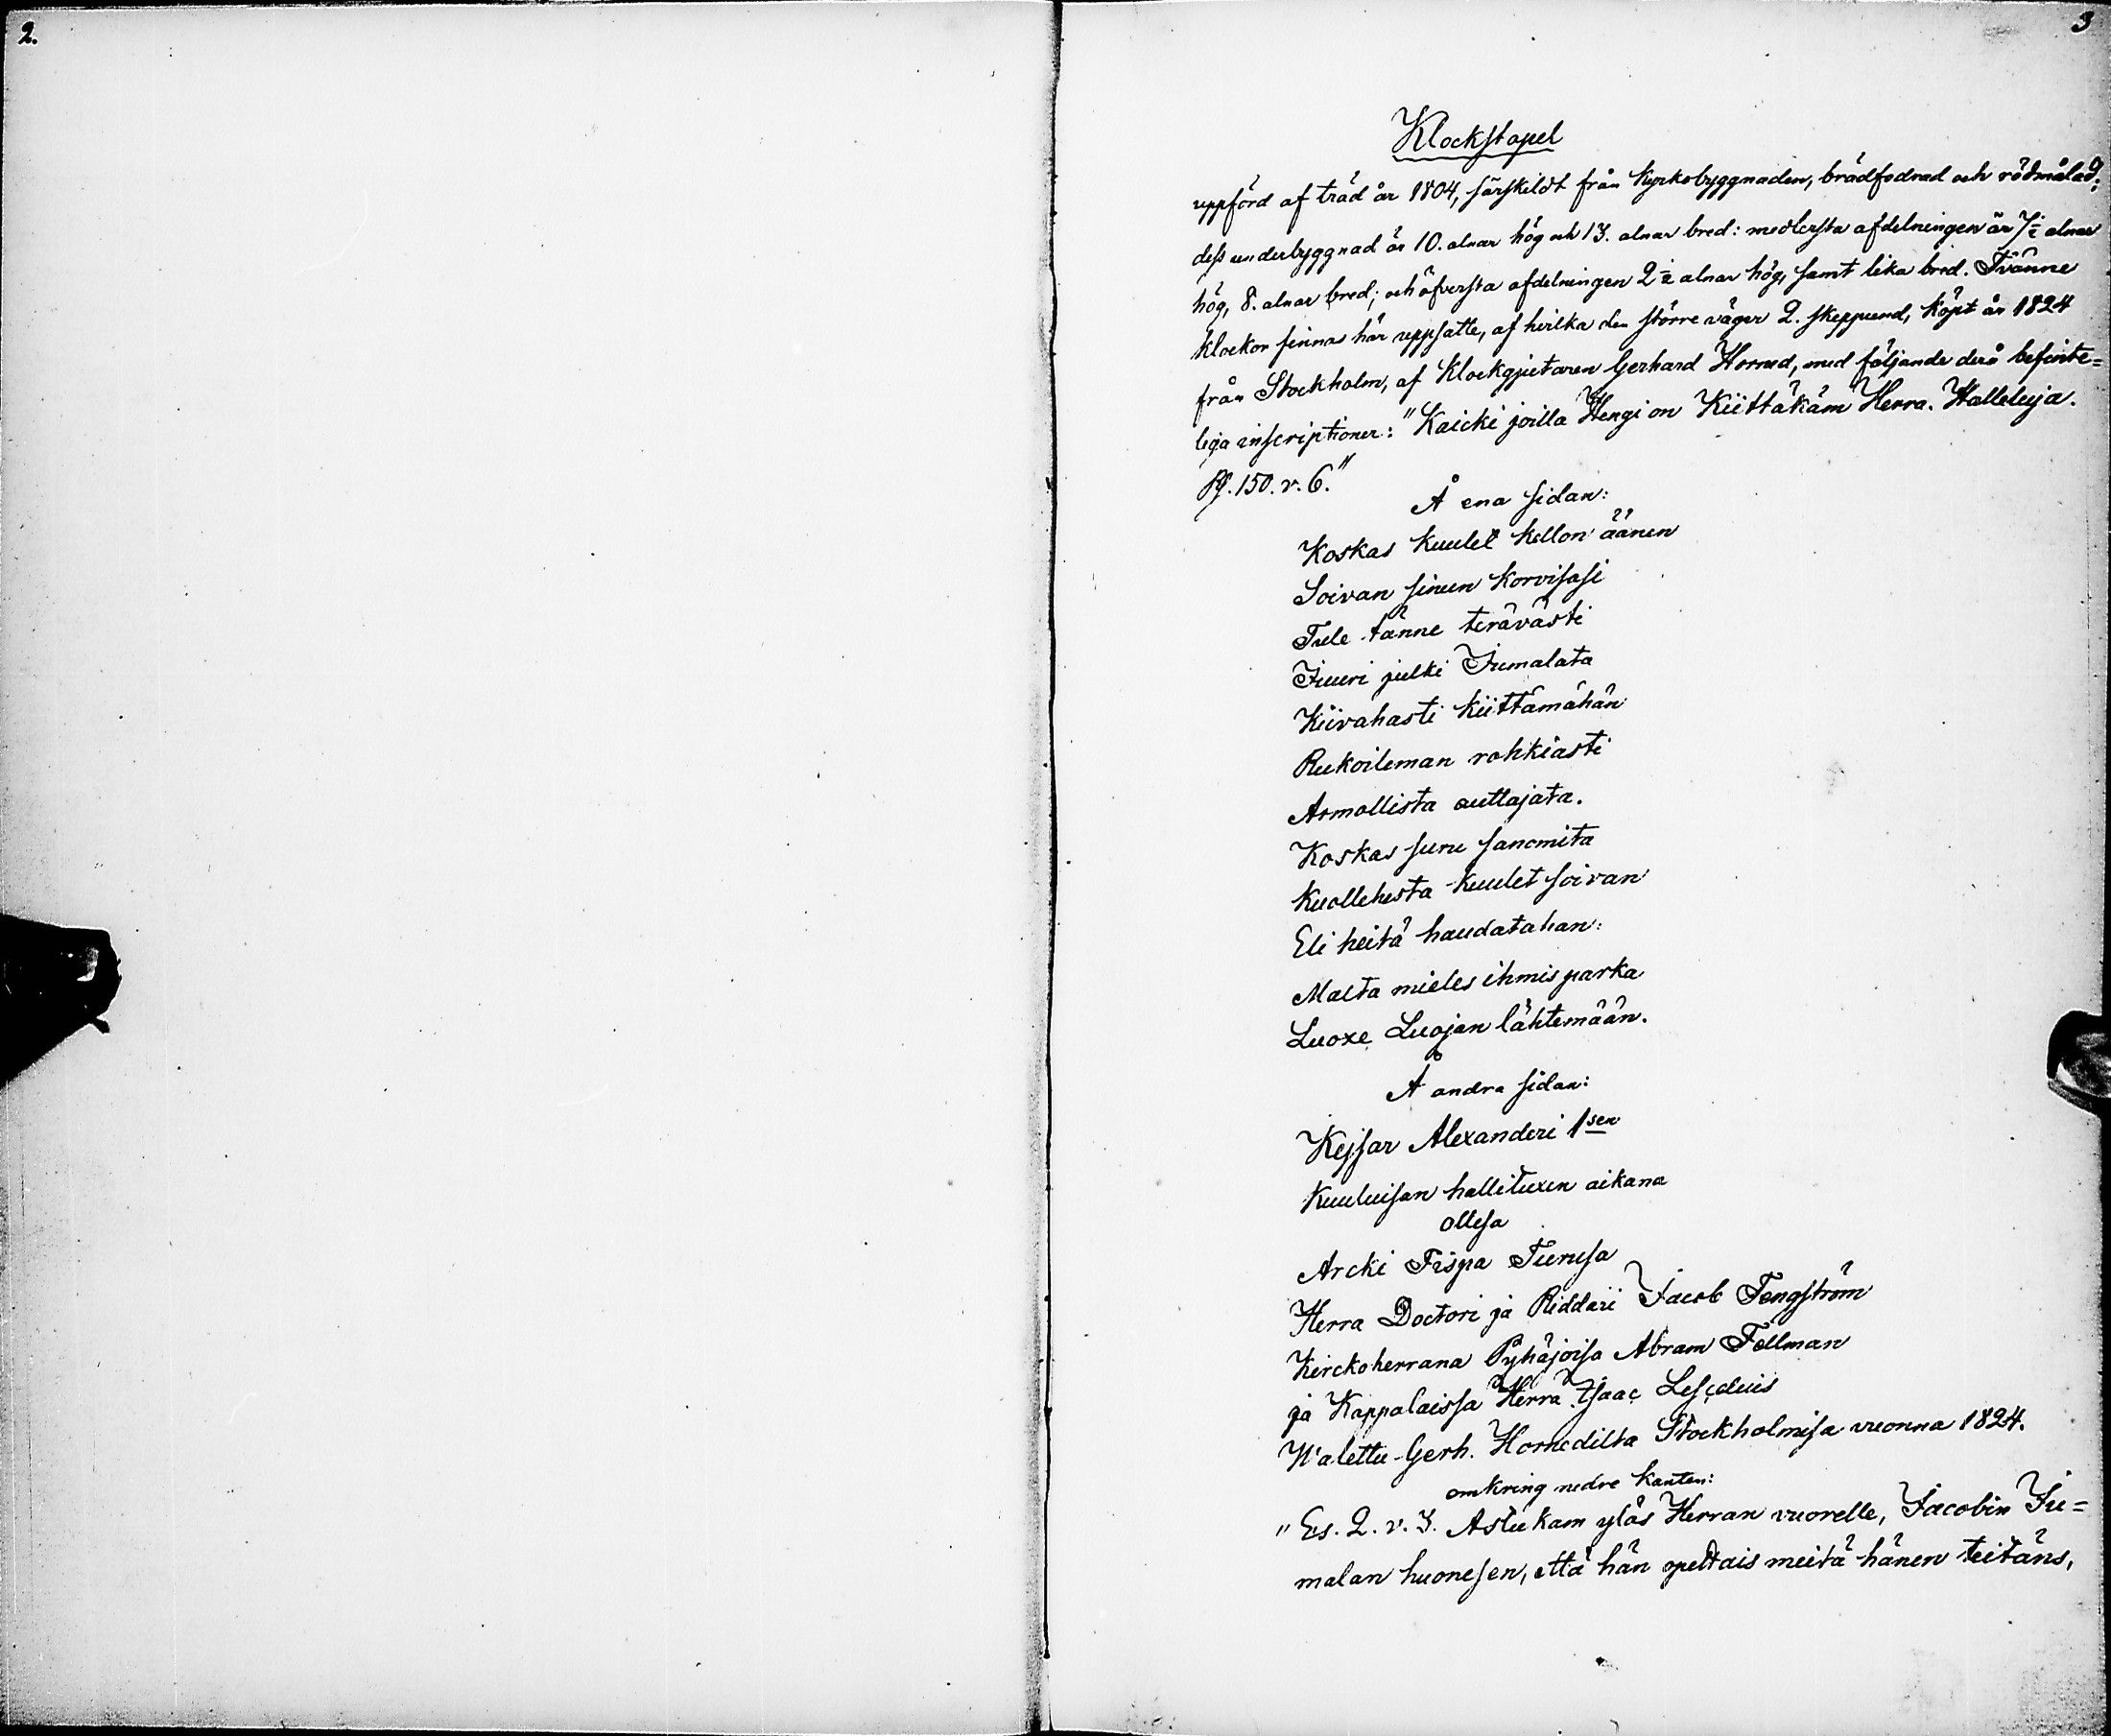 2.
3
Klockstapel
uppförd af träd år 1804, särskildt från Kyrkobyggnaden, brädfodrad och rödmålad;
dess underbyggnad är 10. alnar hög och 13. alnar bred: medlersta afdelningen är 7½ alnar
hög, 8. alnar bred; och öfversta afdelningen 2½ alnar hög, samt lika bred. Tvänne
klockor finnas här uppsatte, af hvilka den större väger 2. skeppund, köpt år 1824
från Stockholm, af Klockgjutaren Gerhard Horned, med följande derå befinte=
liga inscriptioner: "Kaicki joilla Hengi on Kiittäkäm Herra. Halleluja.
Ps. 150. v. 6."
Å ena sidan:
Koskas kuulet kellon äänen
Soivan sinun korvisasi
Tule tänne terävästi
Juuri julki Jumalata
Kiivahasti kiittämähän
Rukoileman rohkiasti
Armollista auttajata.
Koskas suru sanomita
Kuollehesta kuulet soivan
Eli heitä haudatahan:
Malta mieles ihmis parka
Luoxe Luojan lähtemään.
Å andra sidan:
Kejsar Alexanderi 1sen
Kuuluisan hallituxen aikana
ollesa
Arcki Fispa Turusa
Herra Doctori ja Riddari Jacob Tengström
Kirckoherrana Pyhäjoisa Abram Fellman
ja Kappalaissa Herra Isaac Lescelius
Walettu Gerh. Hornedilta Stockholmisa vuonna 1824.
omkring nedre kanten:
"Es. 2. v. 3. Astukam ylös Herran vuorelle, Jacobin Ju=
malan huonesen, että hän opettais meitä hänen teitäns,